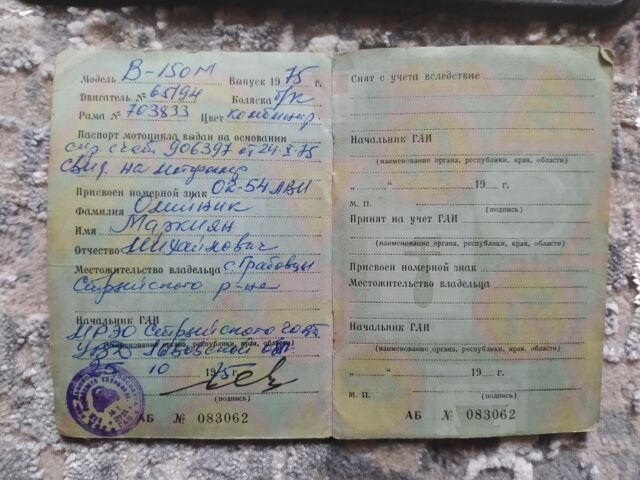 Модель В-150М Выпуск 1975 г.
Двигатель № 65194 Коляска б/к
Рама № 703833 Цвет комбинир.
Паспорт мотоцикла выдан на основании
спр. счет 906397 от 24-X-75
свид. на мотоцикл
Присвоен номерной знак 02-54 ЛВИ
Фамилия
Имя Маркиян
Отчество Михайлович
Местожительство владельца с. Грабовцы
Стрыйского р-на
Начальник ГАИ
МРЭО Стрыйского
(наименование органа, республики, края, области)
УВД Львовской обл.
10 1975 г.
(подпись)
АБ № 083062
Снят с учета вследствие
Начальник ГАИ
(наименование органа, республики, края, области)
„ “ 19 г.
М. П. (подпись)
Принят на учет ГАИ
(наименование органа, республики, края, области)
Присвоен номерной знак
Местожительство владельца
Начальник ГАИ
(наименование органа, республики, края, области)
„ “ 19 г.
М. П. (подпись)
АБ № 083062